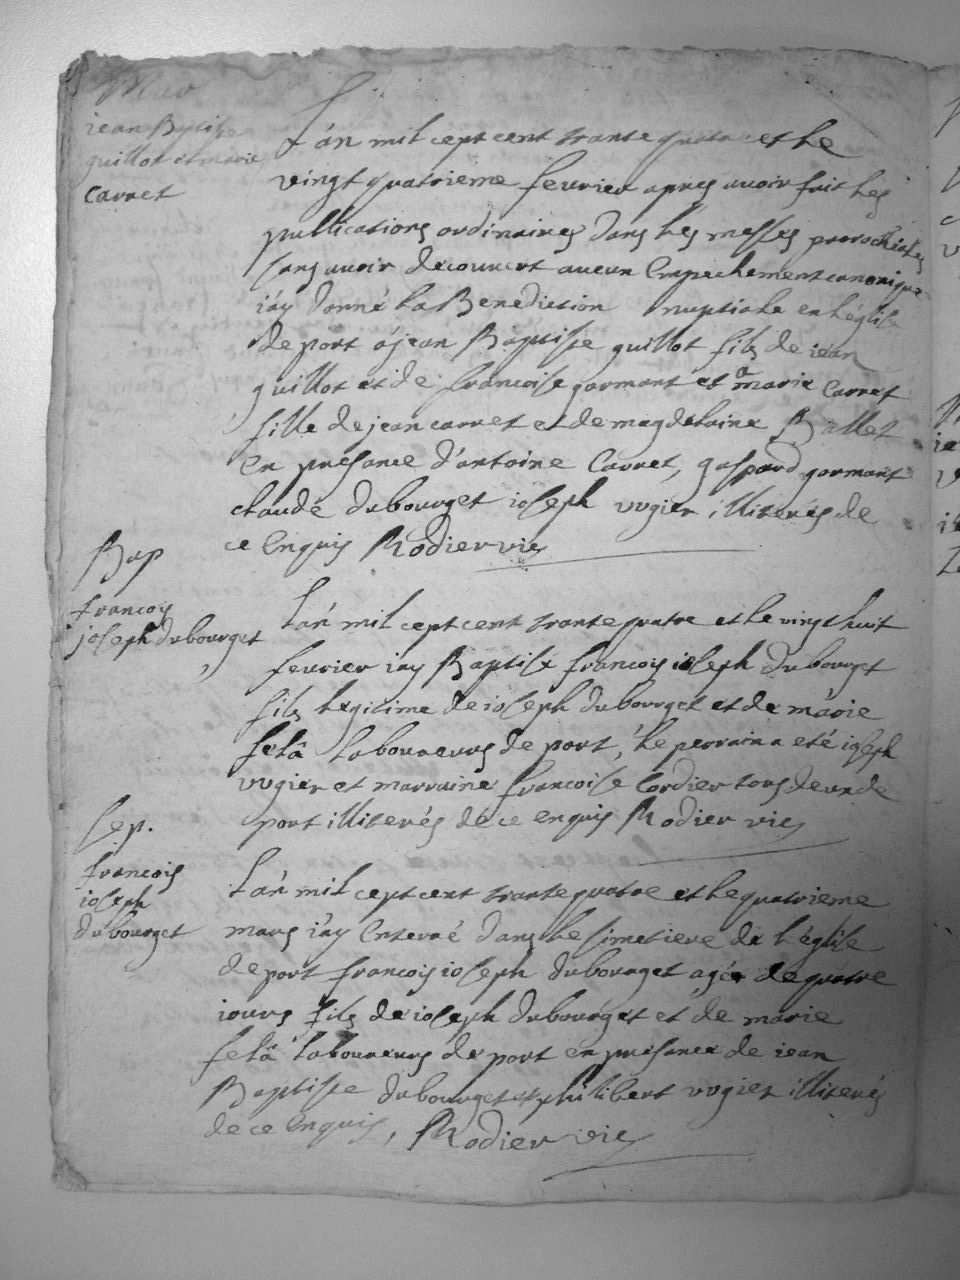 Mar
jean Baptiste
guillot et marie
Carret
L'án mil cept cent trante quatre et le
vingt quatrieme fevrier apres avoir fait les
publications ordinaires dans les messes parrochiales
sans avoir decouvert aucun Empechement canonique
j'áy donné la Benediction nuptiale en l'église
de port á jean Baptiste guillot fils de jean
guillot et de francoise gormant et á marie Carret
fille de jean carret et de magdelaine Ballet
en presance d'antoine Carret, gaspard gormant
claude dubourget joseph vugier illiterés de
ce Enquis Rodier vic
Bap
francois
joseph dubourget
L'án mil cept cent trante quatre et le vingt huit
fevrier j'ay Baptisé francois joseph dubourget
fils legitime de joseph dubourget et de márie
felâ laboureurs de port, le perrain a eté joseph
vugier et marraine francoise Cordier tous deux de
port illiterés dé ce enquis Rodier vic
Sep.
francois
joseph
dubourget
L'án mil cept cent trante quatre et le quatrieme
mars j'áy Enterré dans le simetiere de l'église
de port francois joseph dubourget, agée de quatre
jours fils de joseph dubourget et de marie
felâ laboureurs de port en presance de jean
Baptiste dubourget et philibert vugier illiterés
de ce Enquis, Rodier vic